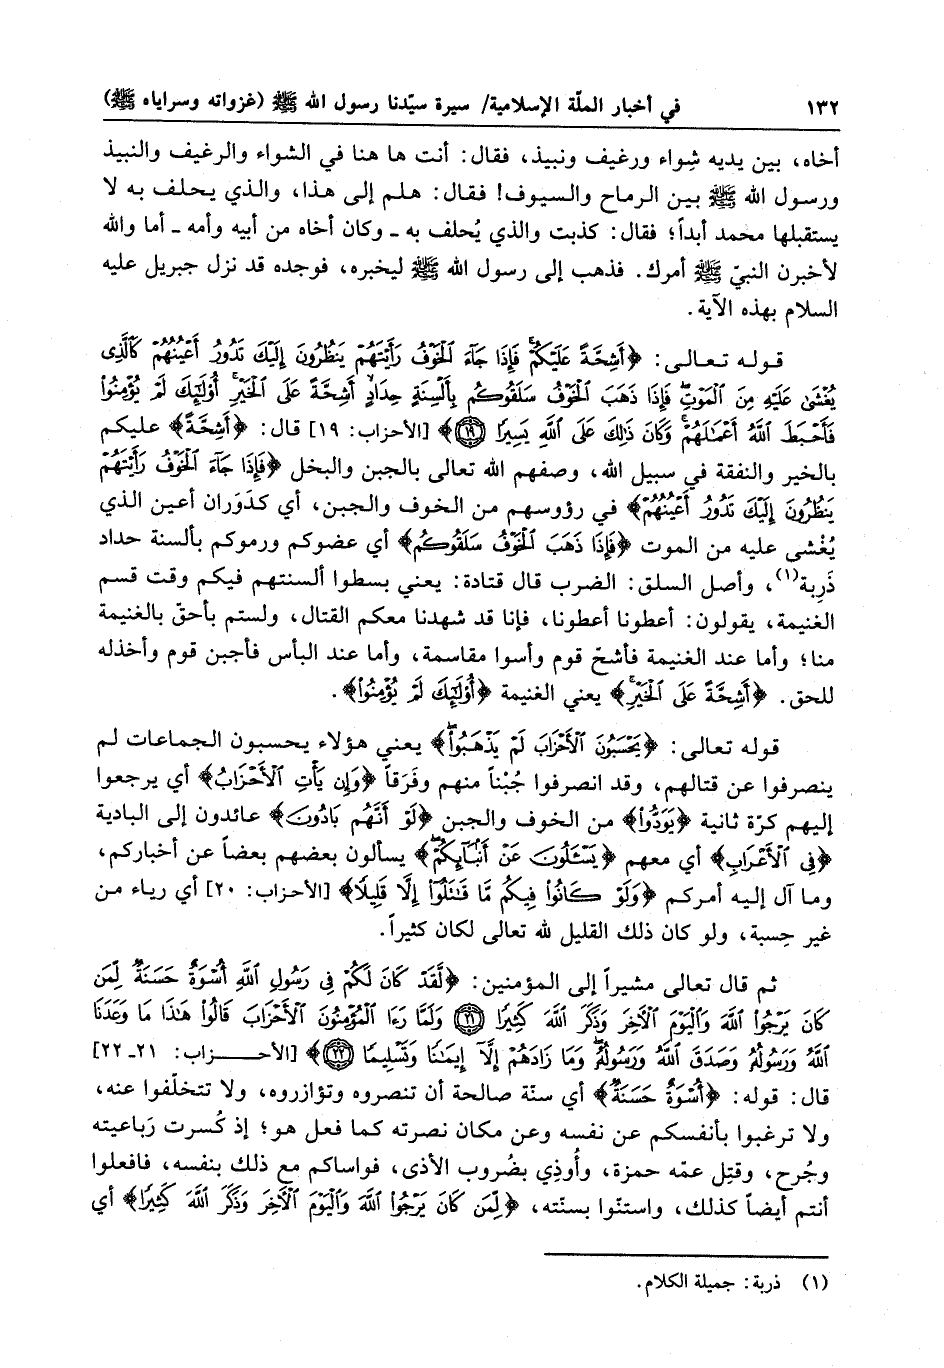 ١٣٢ في أخبار الملّة الإسلامية/ سيرة سيّدنا رسول الله ﷺ (غزواته وسراياه ﷺ)
أخاه، بين يديه شِواء ورغيف ونبيذ، فقال: أنت ها هنا في الشواء والرغيف والنبيذ
ورسول الله ﷺ بين الرماح والسيوف! فقال: هلم إلى هذا، والذي يحلف به لا
يستقبلها محمد أبداً؛ فقال: كذبت والذي يُحلف به ـ وكان أخاه من أبيه وأمه ـ أما والله
لأخبرن النبيّ ﷺ أمرك. فذهب إلى رسول الله ﷺ ليخبره، فوجده قد نزل جبريل عليه
السلام بهذه الآية.
قوله تعالى: ﴿أَشِحَّةً عَلَيْكُمْ ۖ فَإِذَا جَآءَ ٱلْخَوْفُ رَأَيْتَهُمْ يَنظُرُونَ إِلَيْكَ تَدُورُ أَعْيُنُهُمْ كَٱلَّذِى
يُغْشَىٰ عَلَيْهِ مِنَ ٱلْمَوْتِ ۖ فَإِذَا ذَهَبَ ٱلْخَوْفُ سَلَقُوكُم بِأَلْسِنَةٍ حِدَادٍ أَشِحَّةً عَلَى ٱلْخَيْرِ ۚ أُو۟لَٰٓئِكَ لَمْ يُؤْمِنُوا۟
فَأَحْبَطَ ٱللَّهُ أَعْمَٰلَهُمْ ۚ وَكَانَ ذَٰلِكَ عَلَى ٱللَّهِ يَسِيرًا ۝١٩﴾ [الأحزاب: ١٩] قال: ﴿أَشِحَّةً﴾ عليكم
بالخير والنفقة في سبيل الله، وصفهم الله تعالى بالجبن والبخل ﴿فَإِذَا جَآءَ ٱلْخَوْفُ رَأَيْتَهُمْ
يَنظُرُونَ إِلَيْكَ تَدُورُ أَعْيُنُهُمْ﴾ في رؤوسهم من الخوف والجبن، أي كدَوَران أعين الذي
يُغْشى عليه من الموت ﴿فَإِذَا ذَهَبَ ٱلْخَوْفُ سَلَقُوكُم﴾ أي عضوكم ورموكم بألسنة حداد
ذَرِبة(١)، وأصل السلق: الضرب قال قتادة: يعني بسطوا ألسنتهم فيكم وقت قسم
الغنيمة، يقولون: أعطونا أعطونا، فإنا قد شهدنا معكم القتال، ولستم بأحقّ بالغنيمة
منا؛ وأما عند الغنيمة فأشحّ قوم وأسوا مقاسمة، وأما عند البأس فأجبن قوم وأخذله
للحق. ﴿أَشِحَّةً عَلَى ٱلْخَيْرِ ۚ﴾ يعني الغنيمة ﴿أُو۟لَٰٓئِكَ لَمْ يُؤْمِنُوا۟﴾.
قوله تعالى: ﴿يَحْسَبُونَ ٱلْأَحْزَابَ لَمْ يَذْهَبُوا۟ ۖ﴾ يعني هؤلاء يحسبون الجماعات لم
ينصرفوا عن قتالهم، وقد انصرفوا جُبْناً منهم وفَرَقاً ﴿وَإِن يَأْتِ ٱلْأَحْزَابُ﴾ أي يرجعوا
إليهم كرّة ثانية ﴿يَوَدُّوا۟﴾ من الخوف والجبن ﴿لَوْ أَنَّهُم بَادُونَ﴾ عائدون إلى البادية
﴿فِى ٱلْأَعْرَابِ﴾ أي معهم ﴿يَسْـَٔلُونَ عَنْ أَنۢبَآئِكُمْ ۖ﴾ يسألون بعضهم بعضاً عن أخباركم،
وما آل إليه أمركم ﴿وَلَوْ كَانُوا۟ فِيكُم مَّا قَٰتَلُوٓا۟ إِلَّا قَلِيلًا﴾ [الأحزاب: ٢٠] أي رياء من
غير حِسبة، ولو كان ذلك القليل لله تعالى لكان كثيراً.
ثم قال تعالى مشيراً إلى المؤمنين: ﴿لَّقَدْ كَانَ لَكُمْ فِى رَسُولِ ٱللَّهِ أُسْوَةٌ حَسَنَةٌ لِّمَن
كَانَ يَرْجُوا۟ ٱللَّهَ وَٱلْيَوْمَ ٱلْءَاخِرَ وَذَكَرَ ٱللَّهَ كَثِيرًا ۝٢١ وَلَمَّا رَءَا ٱلْمُؤْمِنُونَ ٱلْأَحْزَابَ قَالُوا۟ هَٰذَا مَا وَعَدَنَا
ٱللَّهُ وَرَسُولُهُۥ وَصَدَقَ ٱللَّهُ وَرَسُولُهُۥ ۚ وَمَا زَادَهُمْ إِلَّآ إِيمَٰنًا وَتَسْلِيمًا ۝٢٢﴾ [الأحــــزاب: ٢١ـ ٢٢]
قال: قوله: ﴿أُسْوَةٌ حَسَنَةٌ﴾ أي سنّة صالحة أن تنصروه وتؤازروه، ولا تتخلّفوا عنه،
ولا ترغبوا بأنفسكم عن نفسه وعن مكان نصرته كما فعل هو؛ إذ كُسرت رَباعيته
وجُرح، وقتِل عمّه حمزة، وأُوذِي بضُروب الأذى، فواساكم مع ذلك بنفسه، فافعلوا
أنتم أيضاً كذلك، واستنّوا بسنّته، ﴿لِّمَن كَانَ يَرْجُوا۟ ٱللَّهَ وَٱلْيَوْمَ ٱلْءَاخِرَ وَذَكَرَ ٱللَّهَ كَثِيرًا﴾ أي
(١) ذربة: جميلة الكلام.